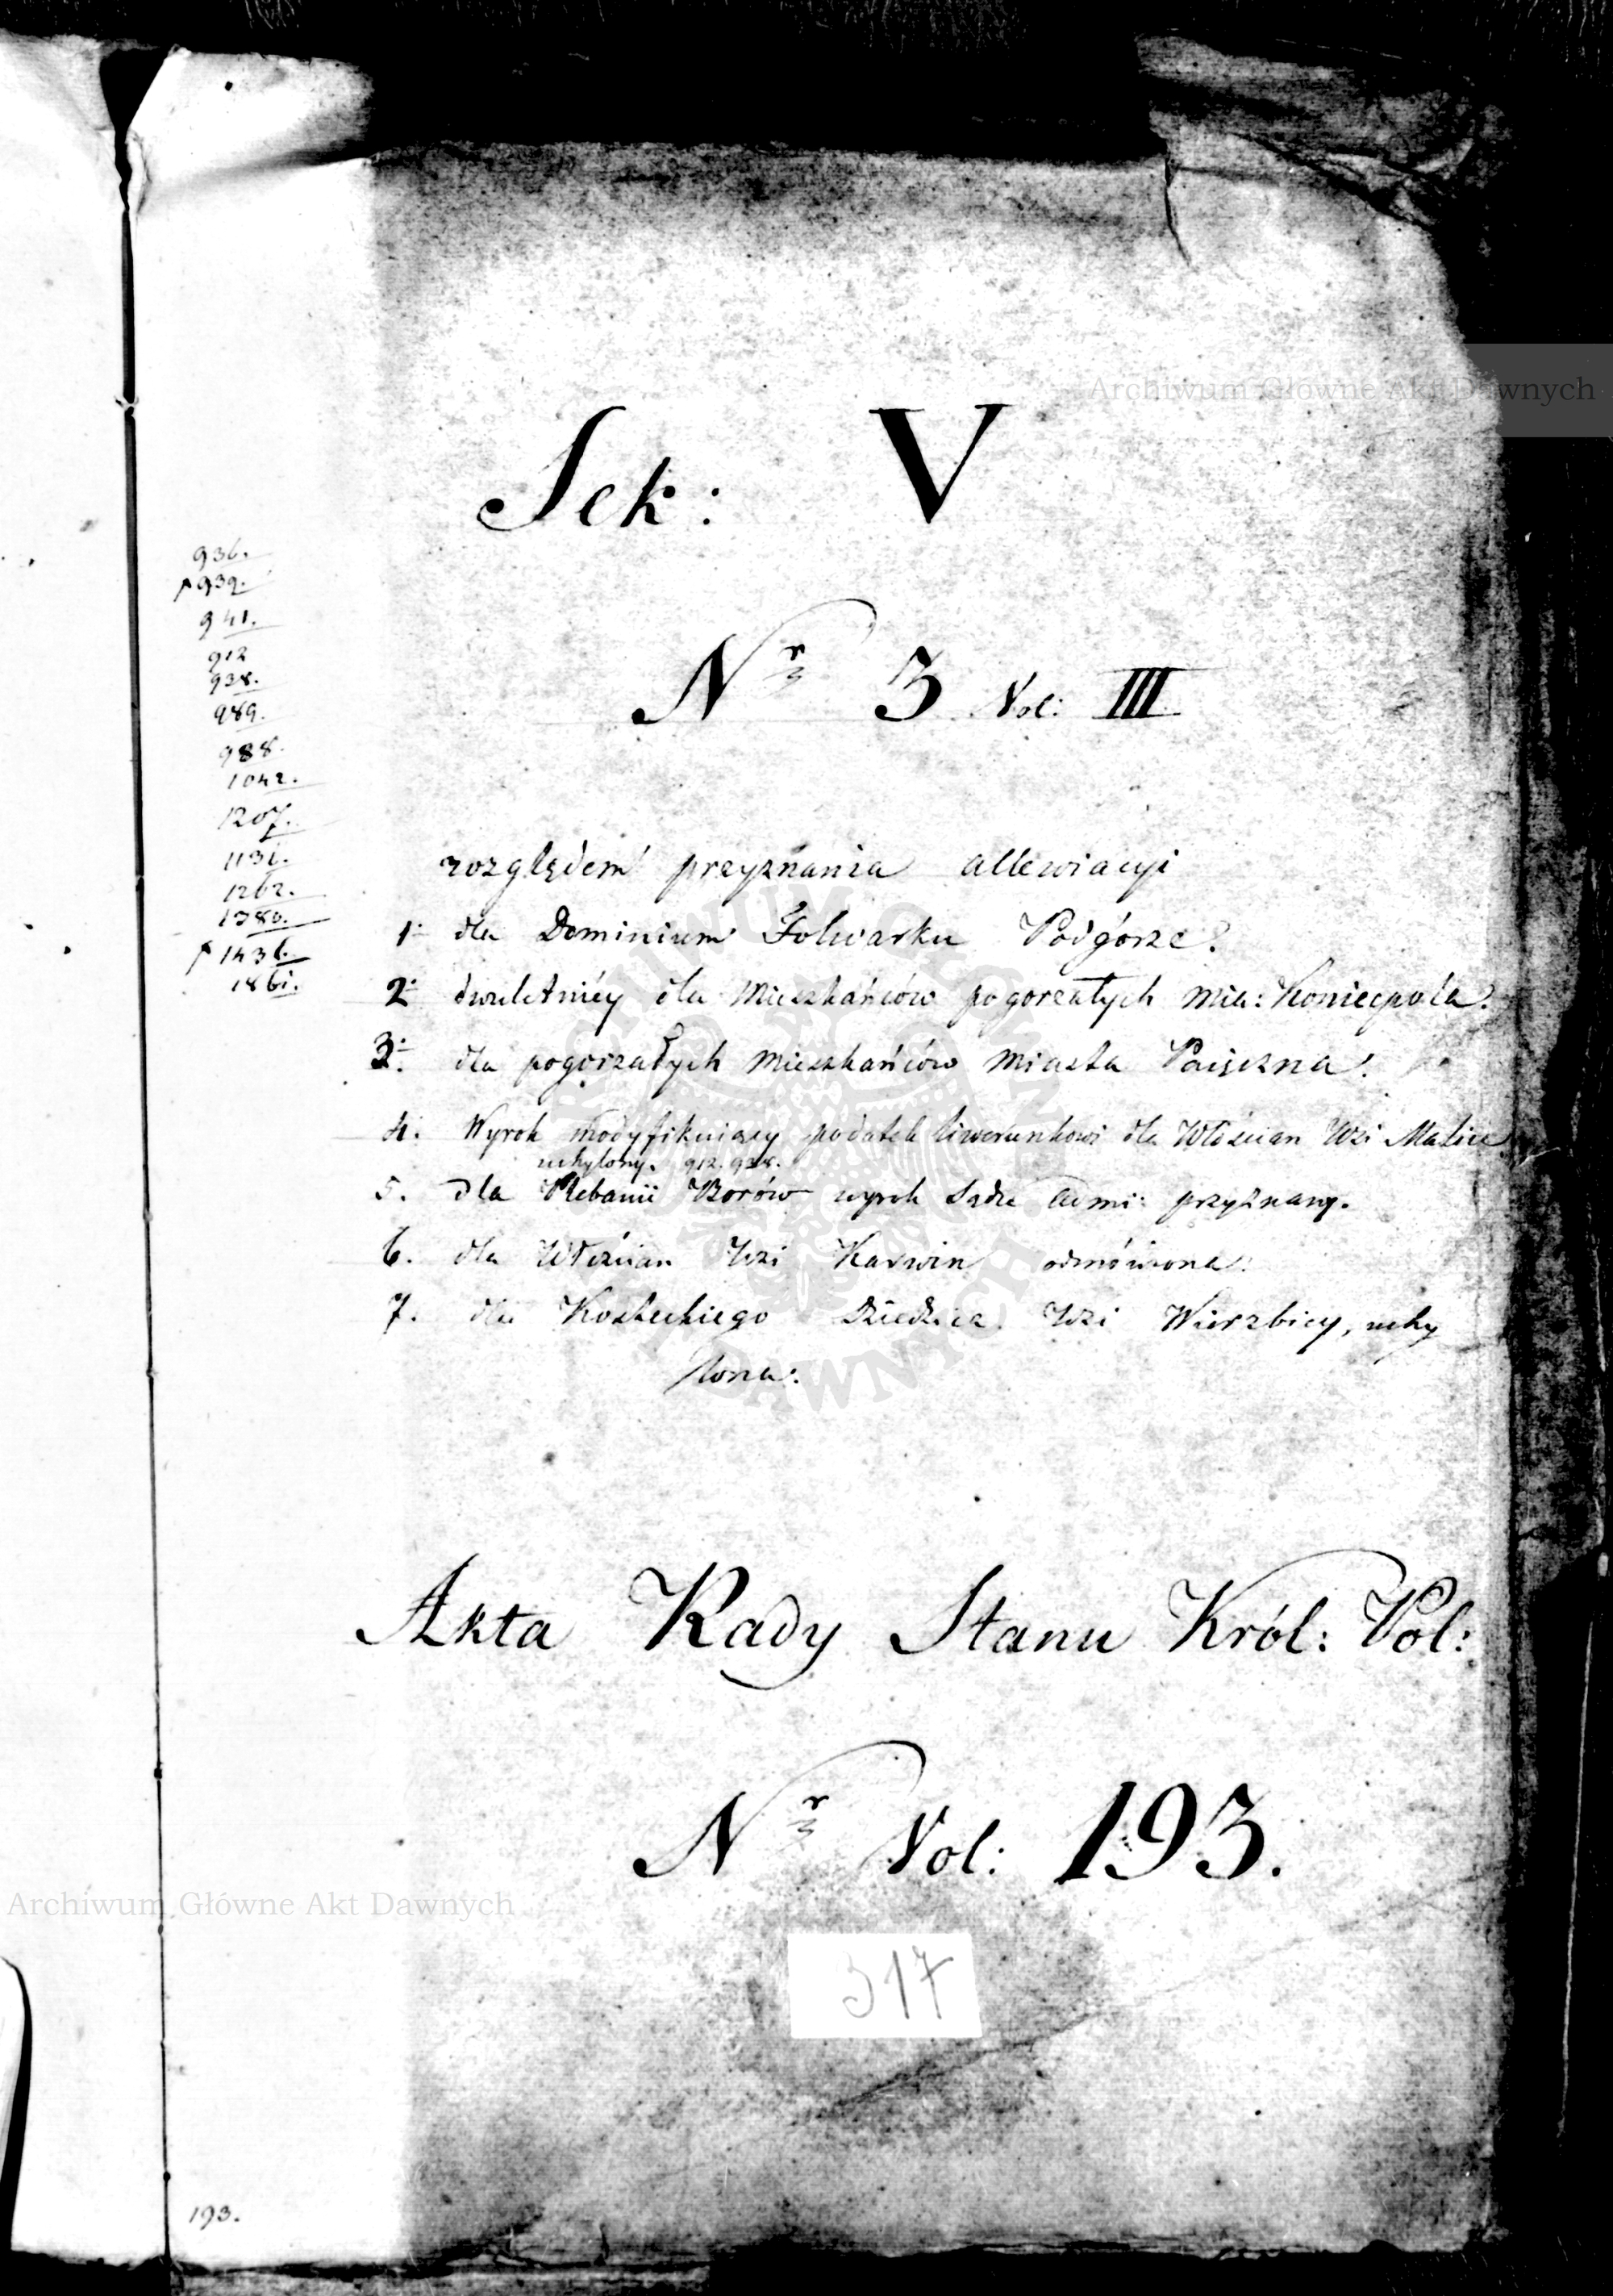 Sek: V
Nr 3 Vol: III
936.
939.
941.
912
938.
989.
988.
1042.
1207.
1131.
1262.
1380.
1436.
1861.
względem przyznania allewiacyi
1. dla Dominium Folwarku Podgórze.
2. dwuletniéy dla Mieszkańców pogorzałych Mia: Koniecpola.
3. dla pogorzałych Mieszkańców Miasta Pajęczna.
4. Wyrok modyfikuiący podatek liwerunkowi dla Włościan Wsi Malice
uchylony. 912. 938.
5. dla Plebanii Borów wyrok Sądu Admi: przyznany.
6. dla Włościan Wsi Karwin odmówiona.
7. dla Dziedzica Wsi Wierzbicy, uchy
lona.
Akta Rady Stanu Król: Pol:
Nr Vol: 193.
317
193.
Archiwum Główne Akt Dawnych
Archiwum Główne Akt Dawnych
ARCHIWUM GŁÓWNE AKT DAWNYCH